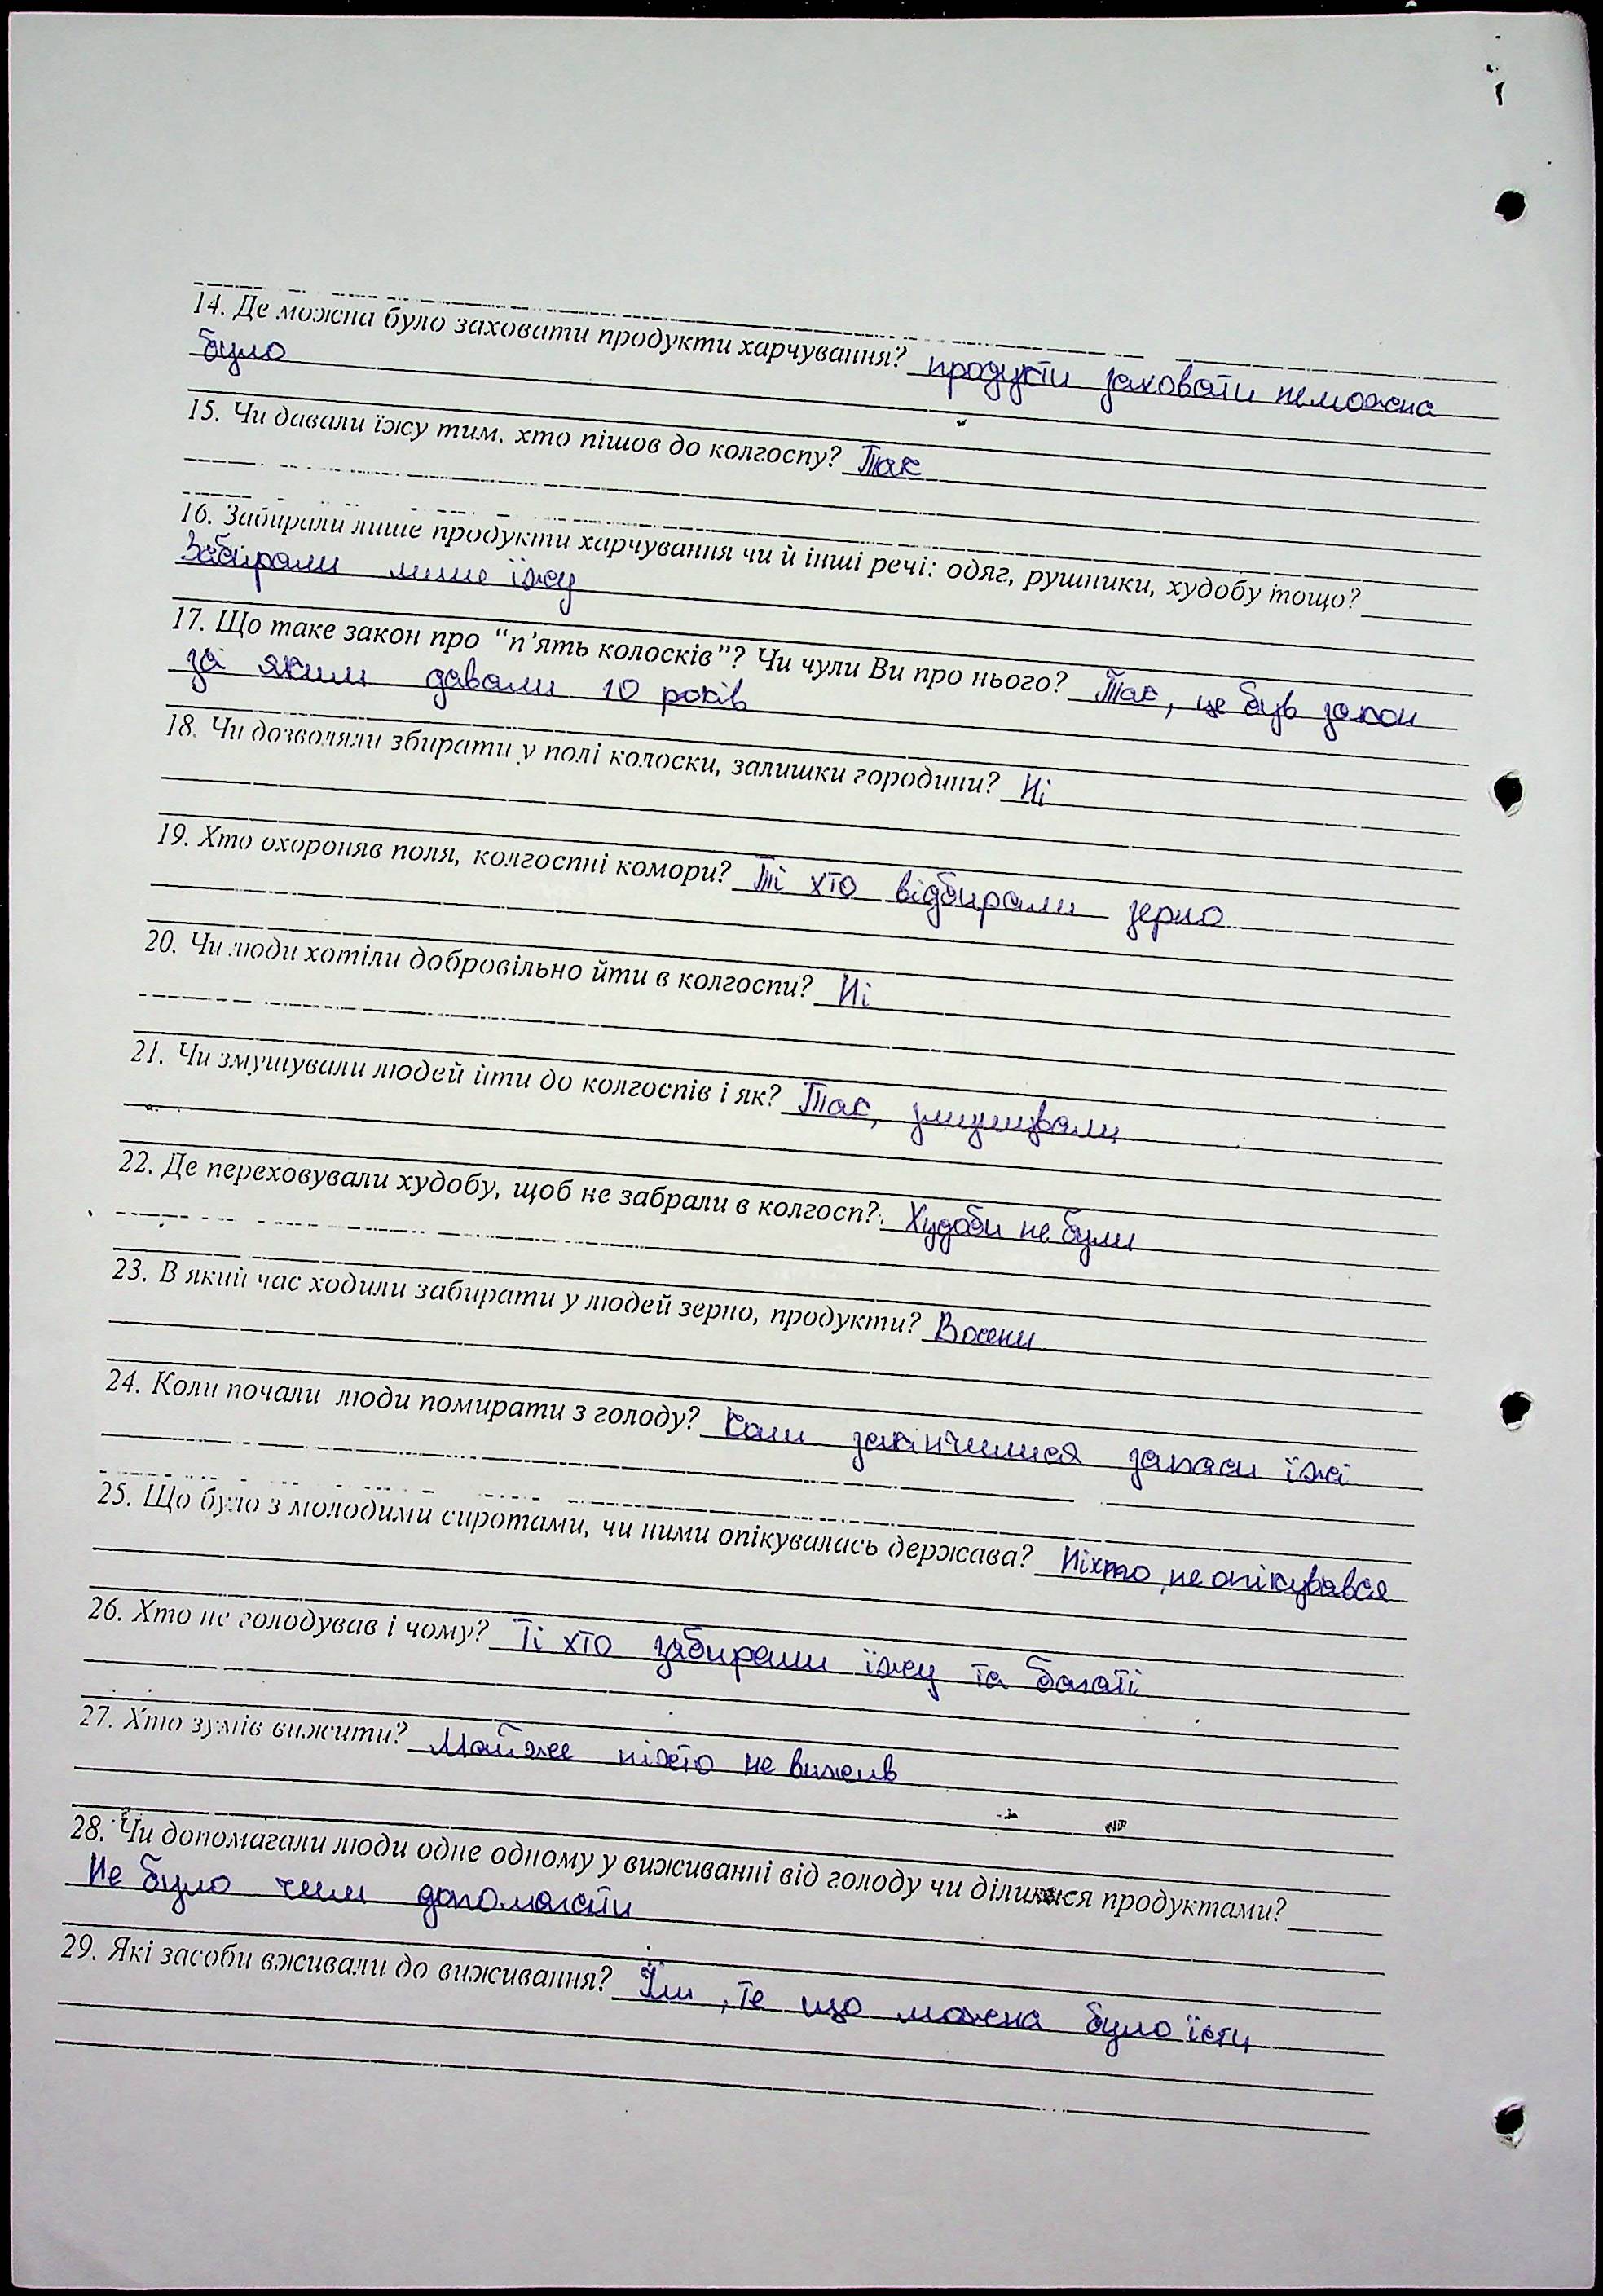 14. Де можна було заховати продукти харчування? продукти заховати неможна
було
15. Чи давали їжу тим, хто пішов до колгоспу? Так
16. Забирали лише продукти харчування чи й інші речі: одяг, рушники, худобу тощо?
Забирали лише їжу
17. Що таке закон про “п’ять колосків”? Чи чули Ви про нього? Так, це був закон
за яким давали 10 років
18. Чи дозволяли збирати у полі колоски, залишки городини? Ні
19. Хто охороняв поля, колгоспні комори? Ті хто відбирали зерно
20. Чи люди хотіли добровільно йти в колгоспи? Ні
21. Чи змушували людей йти до колгоспів і як? Так, змушували
22. Де переховували худобу, щоб не забрали в колгосп? Худоби не були
23. В який час ходили забирати у людей зерно, продукти? Восени
24. Коли почали люди помирати з голоду? Коли закінчилися запаси їжі
25. Що було з молодими сиротами, чи ними опікувалась держава? Ніхто, не опікувався
26. Хто не голодував і чому? Ті хто забирали їжу та багаті
27. Хто зумів вижити? Майже ніхто не вижив
28. Чи допомагали люди одне одному у виживанні від голоду чи ділилися продуктами?
Не було чим допомагати
29. Які засоби вживали до виживання? Їли, те що можна було їсти